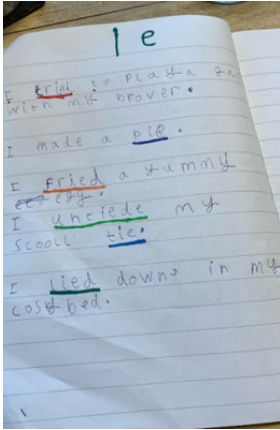 ie
I tried to play a ga
with my brover.
I made a pie.
I fried a yummy
egg.
I unciede my
scooll tie.
I lied down in my
cosy bed.